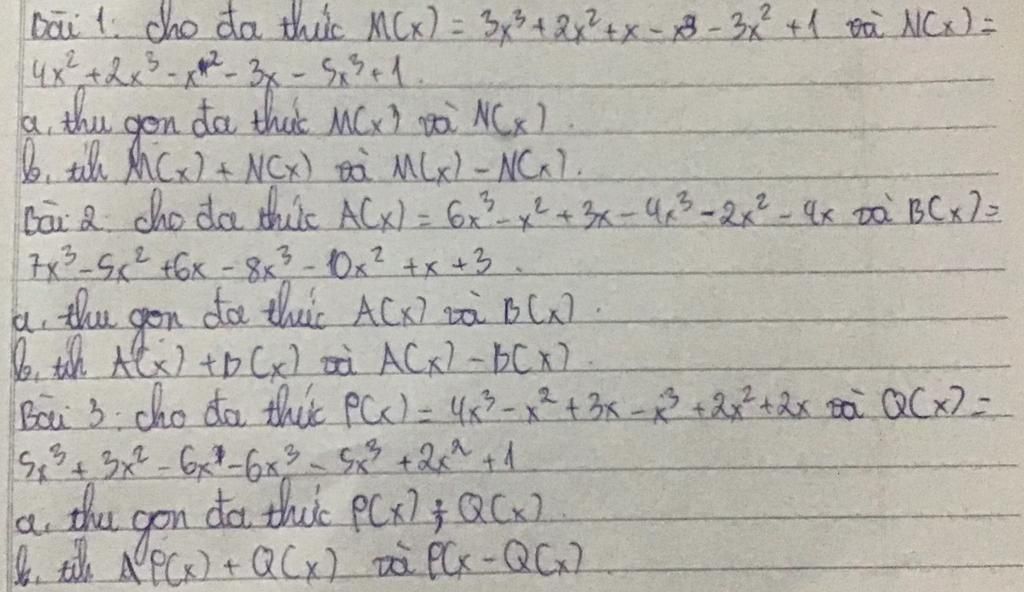 Bài 1: cho đa thức M(x) = 3x³ + 2x² + x - x³ - 3x² + 1 và N(x) =
4x² + 2x³ - x² - 3x - 5x³ + 1.
a, thu gọn đa thức M(x) và N(x).
b, tíh M(x) + N(x) và M(x) - N(x).
Bài 2: cho đa thức A(x) = 6x³ - x² + 3x - 4x³ - 2x² - 4x và B(x) =
7x³ - 5x² + 6x - 8x³ - 10x² + x + 3.
a, thu gọn đa thức A(x) và B(x).
b, tíh A(x) + B(x) và A(x) - B(x).
Bài 3: cho đa thức P(x) = 4x³ - x² + 3x - x³ + 2x² + 2x và Q(x) =
5x³ + 3x² - 6x - 6x³ - 5x³ + 2x² + 1
a, thu gọn đa thức P(x) ; Q(x).
b, tíh P(x) + Q(x) và P(x - Q(x)